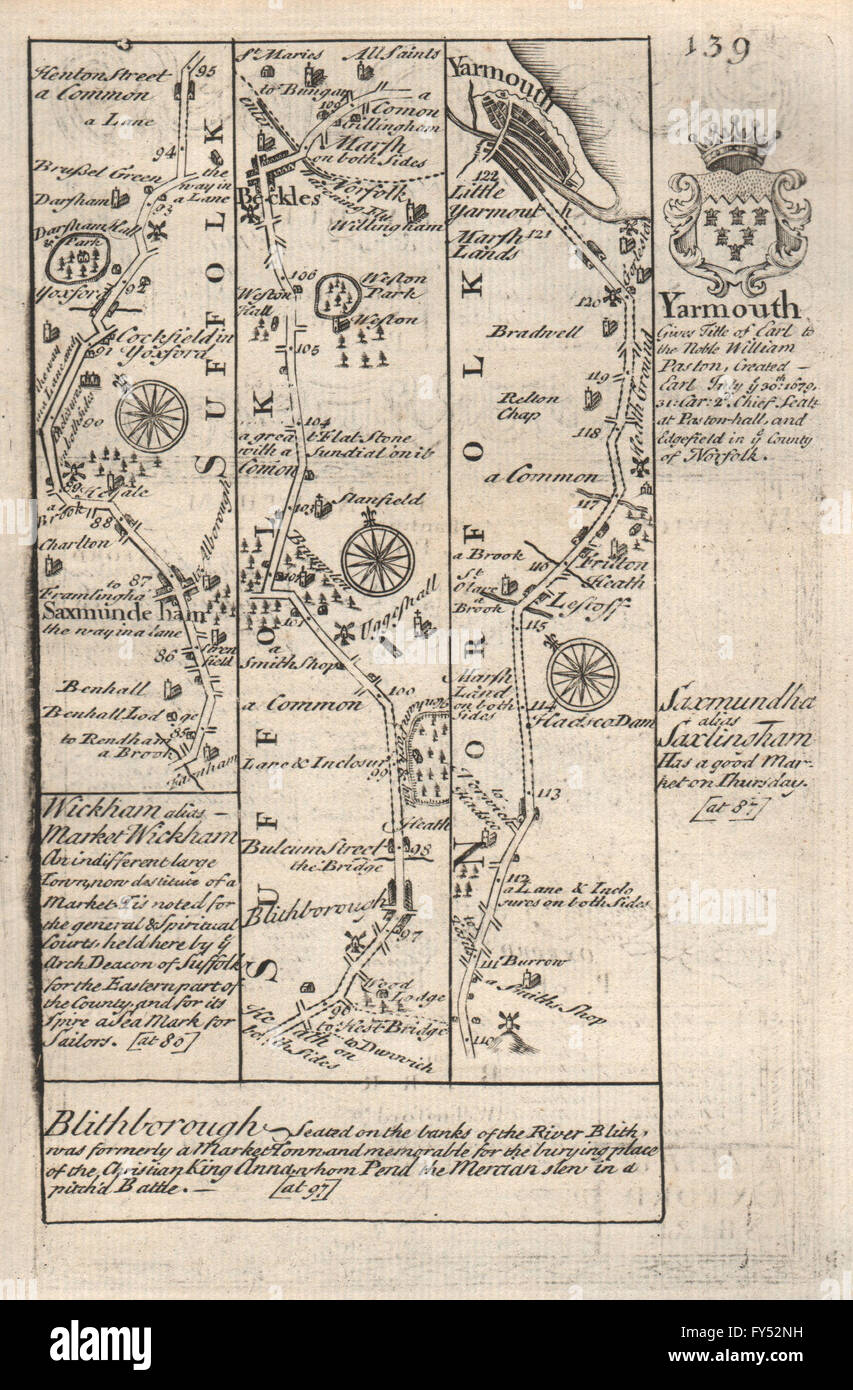 139
Henton Street
a Common
a Lane
95
94
Brussel Green
the
way in
a Lane
Darsham
93
Darsham Hall
&
Park
Yoxford
92
Cockfield in
Yoxford
91
the way
in a Lane and
90
89
Kelsale
a
Brook
88
Charlton
to
Framlingha
87
to Alborough
Saxmunde ham
the way in a lane
86
Stern
field
Benhall
Benhall Lodge
85
to Rendham
a Brook
Farnham
SUFFOLK
Wickham alias
Market Wickham
An indifferent large
Town, now destitute of a
Market. Tis noted for
the general & Spiritual
Courts held here by ye
Arch Deacon of Suffolk
for the Eastern part of
the County, and for its
Spire a Sea Mark for
Sailors. [at 80]
St Maries
All Saints
to Bungay
109
a
Comon
Gillingham
Marsh
on both Sides
enter
Beckles
Norfolk
Willingham
106
Weston
Hall
Weston
Park
Weston
105
104
a great Flat Stone
with a Sundial on it
Comon
103
Stanfield
Brampton
102
101
Uggeshall
a
Smith Shop
100
a Common
Lane & Inclosur
99
Heath
Bulcum Street
98
the Bridge
Blithborough
97
Wood
Lodge
96
to Hest Bridge
to Dunwich
Heath on
both Sides
SUFFOLK
Yarmouth
122
Little
Yarmouth
Marsh
Lands
121
Gorleston
120
Bradwell
119
Heath Ground
Relton
Chap
118
a Common
117
a Brook
116
Fritton
Heath
St
Olave
a
Brook
Lestoff
115
Marsh
Land
on both
Sides
114
Hadsco Dam
113
to Norwich
Hadsco
112
a Lane & Inclo
sures on both Sides
111
Burrow
a Smiths Shop
110
NORFOLK
Yarmouth
Gives Title of Earl to
the Noble William
Paston, Created
Earl July ye 30th: 1679,
31: Car: 2d. Chief Seats
at Paston-hall, and
Edgefield in ye County
of Norfolk.
Saxmundha
alias
Saxlingham
Has a good Mar-
ket on Thursday.
[at 87]
Blithborough Seated on the banks of the River Blith,
was formerly a Market Town and memorable for the burying place
of the Christian King Anna, whom Pend the Mercian slew in a
pitch'd Battle. — [at 97]
alamy stock photo
FY52NH
www.alamy.com